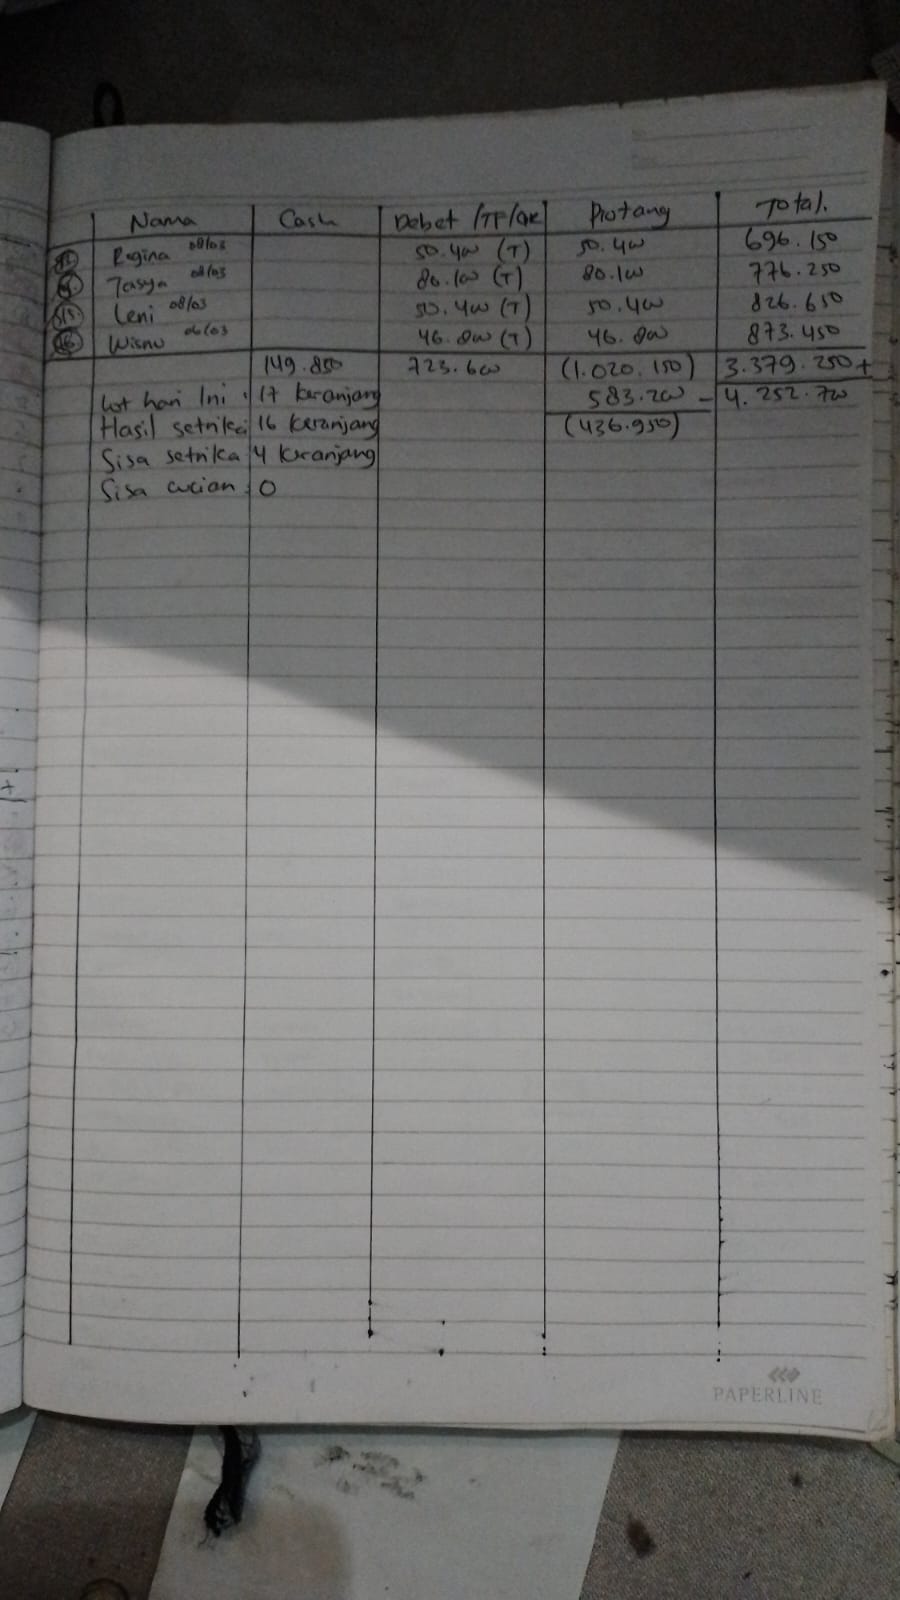 Nama Cash Debet /TF/QR Piutang Total.
Regina 08/03 50.400 (T) 50.400 696.150
Tasya 08/03 80.100 (T) 80.100 776.250
Leni 08/03 50.400 (T) 50.400 826.650
Wisnu 06/03 46.800 (T) 46.800 873.450
149.850 723.600 (1.020.150) 3.379.250 +
hari Ini : 17 keranjang 583.200 - 4.252.700
Hasil setrika: 16 keranjang (436.950)
Sisa setrika 4 keranjang
Sisa cucian : 0
PAPERLINE